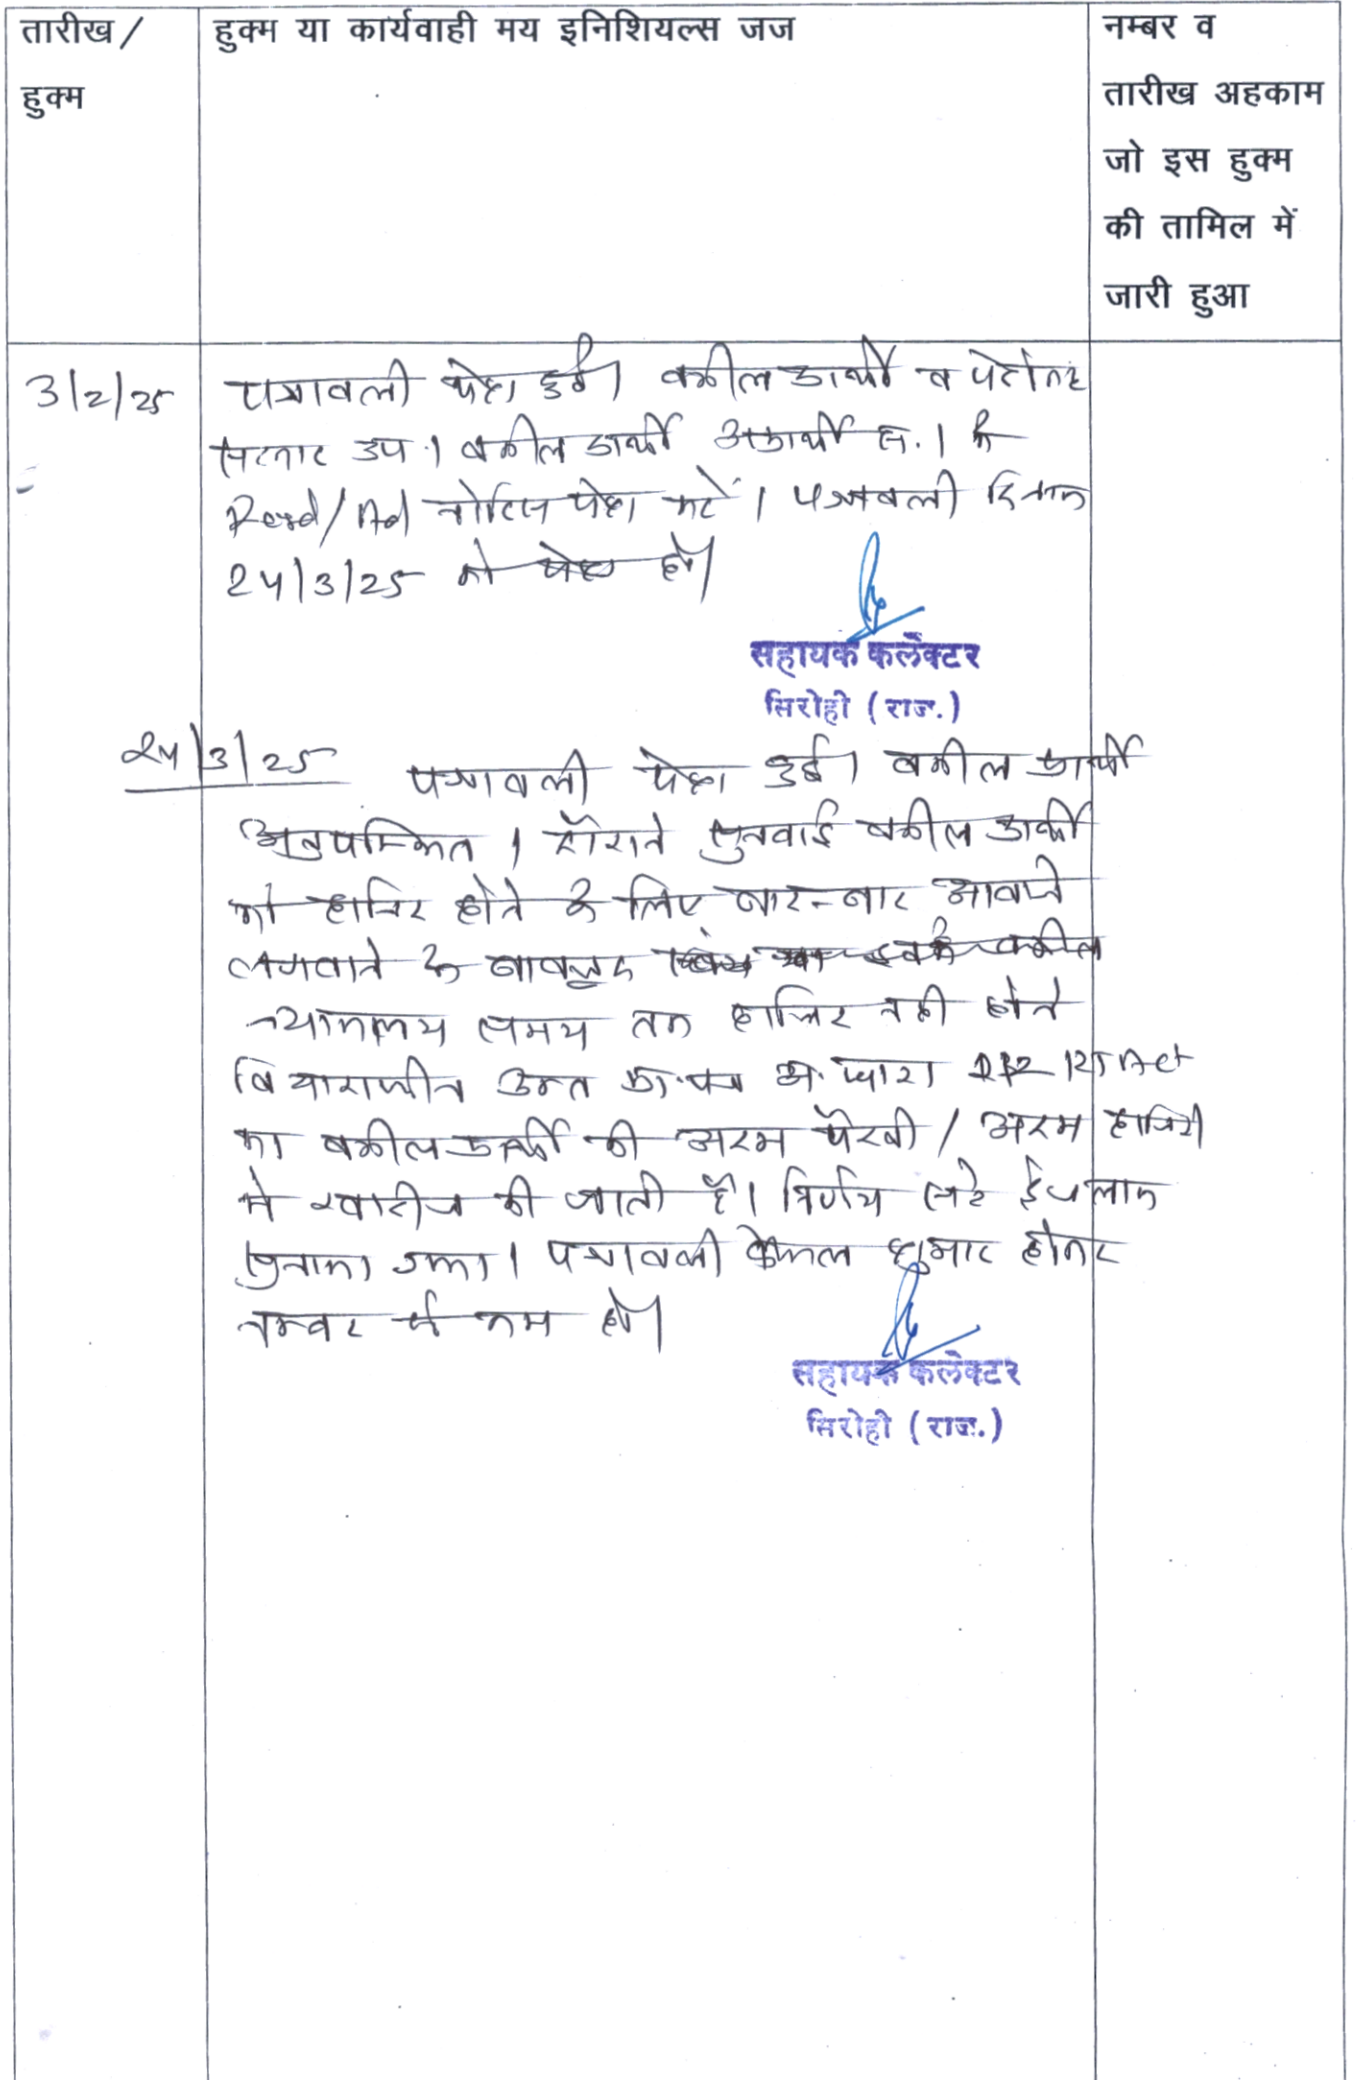 तारीख /
हुक्म
हुक्म या कार्यवाही मय इनिशियल्स जज
नम्बर व
तारीख अहकाम
जो इस हुक्म
की तामिल में
जारी हुआ
3/2/25 पत्रावली पेश हुई। वकील प्रार्थी व पेटोकार
सरकार उप.। वकील प्रार्थी अप्रार्थी सं.1 के
Regd/Ad नोटिस पेश करें। पत्रावली दिनांक
24/3/25 को पेश हो।
सहायक कलेक्टर
सिरोही (राज.)
24/3/25 पत्रावली पेश हुई। वकील प्रार्थी
अनुपस्थित। दौराने सुनवाई वकील प्रार्थी
को हाजिर होने के लिए बार-बार आवाजे
लगवाने के बावजूद वकील
न्यायालय समय तक हाजिर नही होने
विचाराधीन उक्त प्रा.पत्र अ.धारा 212 RT Act
का वकील प्रार्थी की अदम पैरवी / अदम हाजिरी
मे खारीज की जाती है। निर्णय सरे ईजलास
सुनाया गया। पत्रावली फैसल शुमार होकर
नम्बर से कम हो।
सहायक कलेक्टर
सिरोही (राज.)